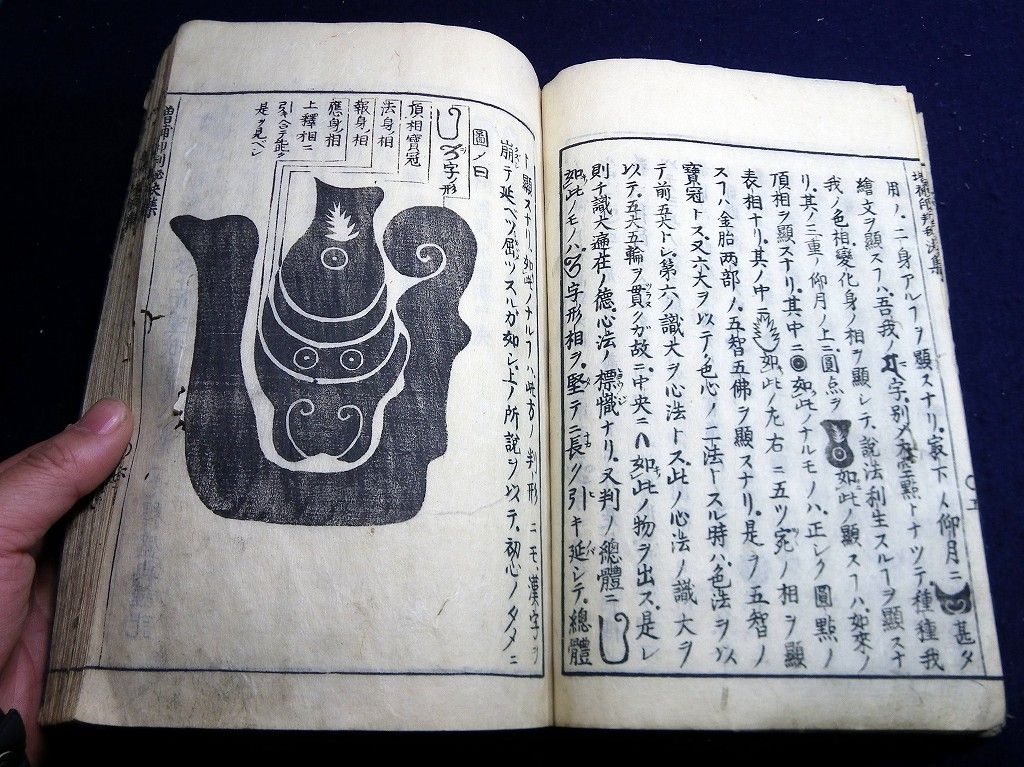 用ノ、二身アルフヲ顯スナリ、寂下ノ仰月ニ 甚タ
繪文ヲ顯スフハ、吾我ノ 字別ノ大空點トナツテ、種種我
我ノ色相變化身ノ相ヲ顯シテ、說法利生スルヿヲ顯スナ
リ、其ノ三重ノ仰月ノ上ニ圓点ヲ 如此ノ顯スフハ、如來ノ
頂相ヲ顯スナリ、其中ニ 如此ナルモノハ正シク圓點ノ
表相ナリ、其ノ中ニ 如此ノ左右ニ五ツ宛ノ相ヲ顯
スフハ金胎两部ノ、五智五佛ヲ顯スナリ、是ヲ五智ノ
寶冠トス、又六大ヲ以テ、色心ノ二法トスル時ハ、色法ヲ以
テ前五大トシ、第六ノ識大ヲ心法トス、此ノ心法ノ識大ヲ
以テ、五大五輪ヲ貫クガ故ニ、中央ニ 如此ノ物ヲ出ス、是レ
則チ識大遍在ノ德、心法ノ標幟ナリ、又判ノ總體ニ
如此ノモノハ、 字形相ヲ、堅テニ長ク引キ延シテ、總體
ト顯スナリ、如此ノナルフハ、此方ノ判形ニモ、漢字ヲ
崩テ延ベツ、屈ツスルガ如シ、上ノ所說ヲ以テ、初心ノタメニ
圖ノ曰
字ノ形
頂相寶冠
法身ノ相
報身ノ相
應身ノ相
上釋相ニ
引キ合テ能ク
是ヲ見ベシ